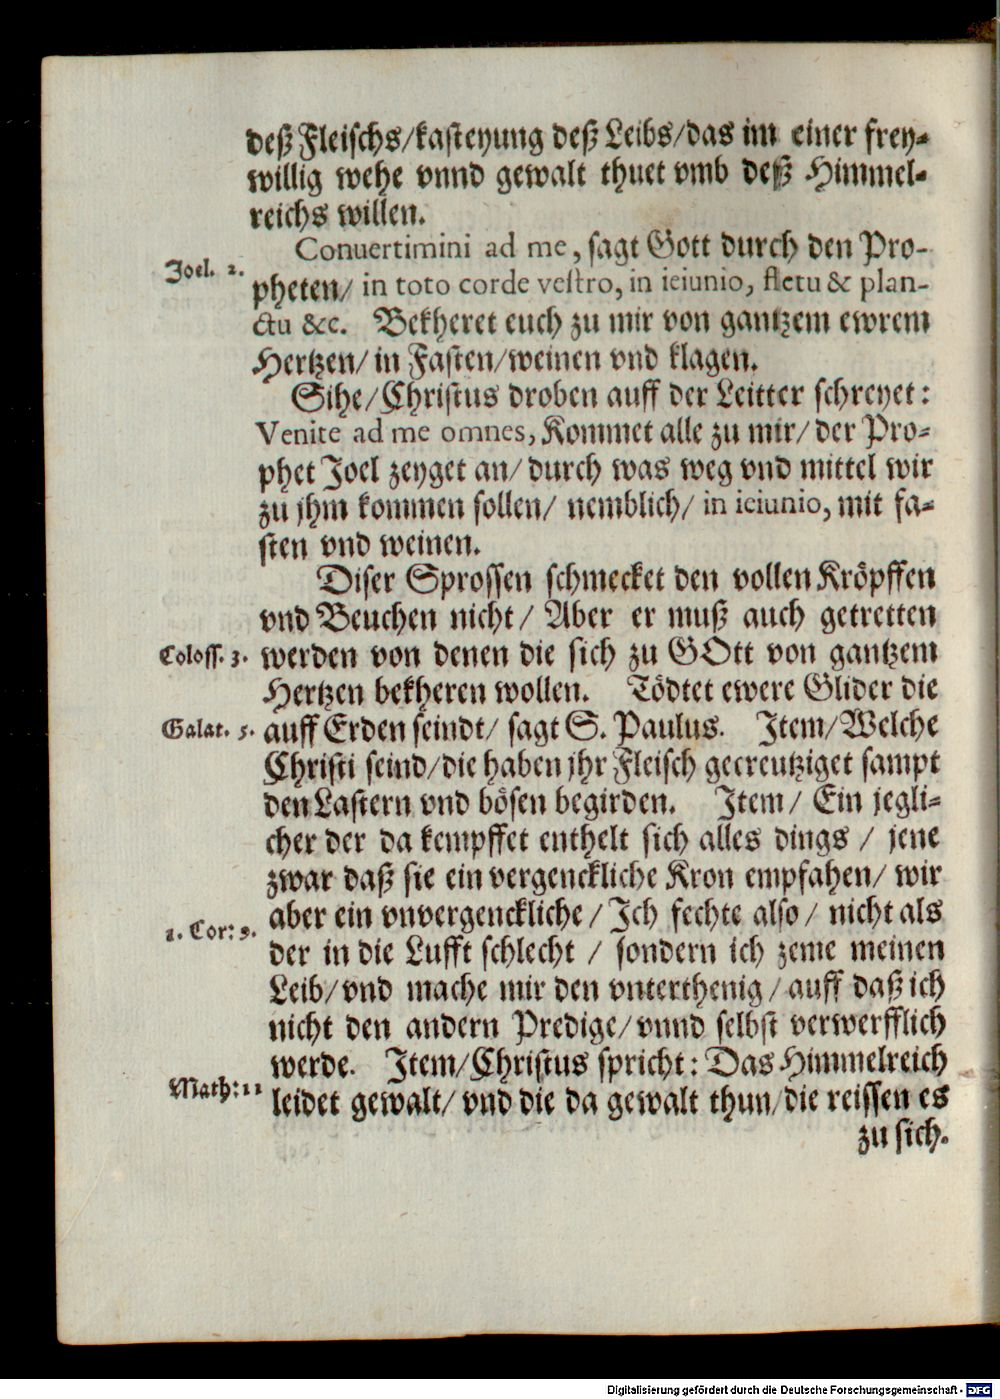 deß Fleischs/kasteyung deß Leibs/das im einer frey-
willig wehe vnnd gewalt thuet vmb deß Himmel-
reichs willen.
Conuertimini ad me, sagt Gott durch den Pro-
Joel. 2.
pheten/ in toto corde vestro, in ieiunio, fletu & plan-
ctu &c. Bekheret euch zu mir von gantzem ewrem
Hertzen/ in Fasten/weinen vnd klagen.
Sihe/Christus droben auff der Leitter schreyet:
Venite ad me omnes, Kommet alle zu mir/ der Pro-
phet Joel zeyget an/ durch was weg vnd mittel wir
zu jhm kommen sollen/ nemblich/ in ieiunio, mit fa-
sten vnd weinen.
Diser Sprossen schmecket den vollen Kröpffen
vnd Beuchen nicht/ Aber er muß auch getretten
Coloss. 3.
werden von denen die sich zu GOtt von gantzem
Hertzen bekheren wollen. Tödtet ewere Glider die
Galat. 5.
auff Erden seindt/ sagt S. Paulus. Item/Welche
Christi seind/die haben jhr Fleisch gecreutziget sampt
den Lastern vnd bösen begirden. Item/ Ein jegli-
cher der da kempffet enthelt sich alles dings / jene
zwar daß sie ein vergenckliche Kron empfahen/ wir
aber ein vnvergenckliche/ Ich fechte also/ nicht als
1. Cor: 9.
der in die Lufft schlecht / sondern ich zeme meinen
Leib/vnd mache mir den vnterthenig/auff daß ich
nicht den andern Predige/vnnd selbst verwerfflich
werde. Item/Christus spricht: Das Himmelreich
Math: 11
leidet gewalt/ vnd die da gewalt thun/die reissen es
zu sich.
Digitalisierung gefördert durch die Deutsche Forschungsgemeinschaft - DFG